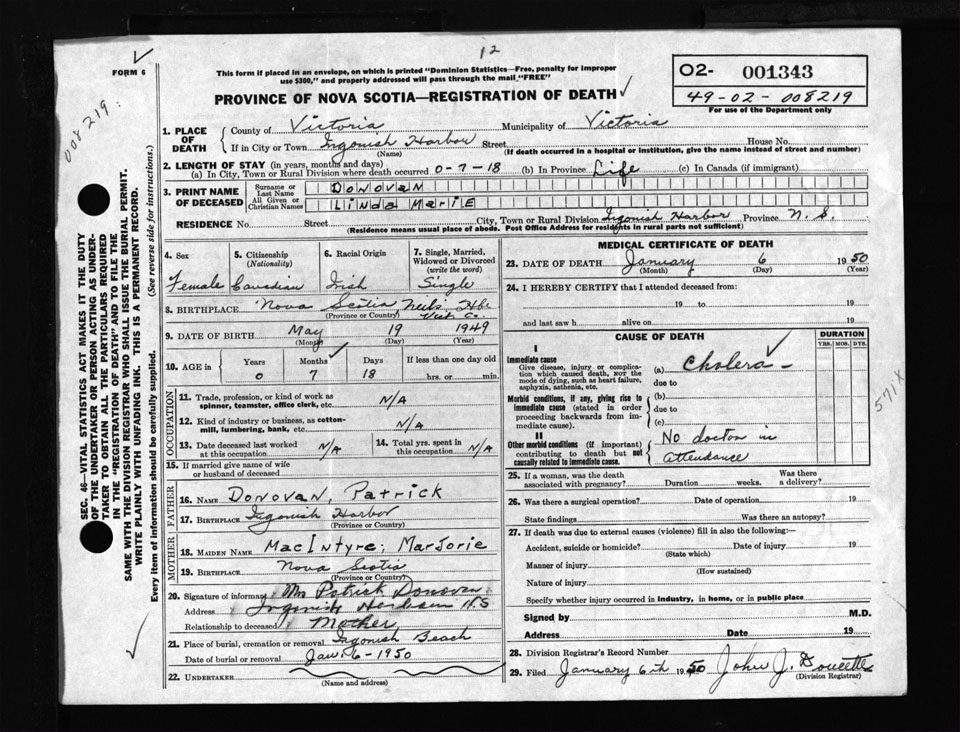 12
FORM 6
This form if placed in an envelope, on which is printed "Dominion Statistics—Free, penalty for improper
use $300," and properly addressed will pass through the mail "FREE"
PROVINCE OF NOVA SCOTIA—REGISTRATION OF DEATH
02- 001343
49-02-008219
For use of the Department only
008219
1. PLACE OF DEATH
County of Victoria Municipality of Victoria
If in City or Town Ingonish Harbor Street House No.
(Name) (If death occurred in a hospital or institution, give the name instead of street and number)
2. LENGTH OF STAY (in years, months and days)
(a) In City, Town or Rural Division where death occurred 0-7-18 (b) In Province Life (c) In Canada (if immigrant)
3. PRINT NAME OF DECEASED
Surname or Last Name DONOVAN
All Given or Christian Names LINDA MARIE
RESIDENCE No. Street City, Town or Rural Division Ingonish Harbor Province N. S.
(Residence means usual place of abode. Post Office Address for residents in rural parts not sufficient)
SEC. 46—VITAL STATISTICS ACT MAKES IT THE DUTY
OF THE UNDERTAKER OR PERSON ACTING AS UNDER-
TAKER TO OBTAIN ALL THE PARTICULARS REQUIRED
IN THE "REGISTRATION OF DEATH" AND TO FILE THE
SAME WITH THE DIVISION REGISTRAR WHO SHALL ISSUE THE BURIAL PERMIT.
WRITE PLAINLY WITH UNFADING INK. THIS IS A PERMANENT RECORD.
Every item of information should be carefully supplied. (See reverse side for instructions.)
4. Sex
Female
5. Citizenship
(Nationality)
Canadian
6. Racial Origin
Irish
7. Single, Married,
Widowed or Divorced
(write the word)
Single
8. BIRTHPLACE Nova Scotia Neil's Hbr
(Province or Country) Vict. Co.
9. DATE OF BIRTH May 19 1949
(Month) (Day) (Year)
10. AGE in
Years Months Days If less than one day old
0 7 18 hrs. or min.
OCCUPATION
11. Trade, profession, or kind of work as
spinner, teamster, office clerk, etc. N/A
12. Kind of industry or business, as cotton-
mill, lumbering, bank, etc. N/A
13. Date deceased last worked
at this occupation N/A
14. Total yrs. spent in
this occupation N/A
15. If married give name of wife
or husband of deceased
FATHER
16. NAME Donovan, Patrick
17. BIRTHPLACE Ingonish Harbor
(Province or Country)
MOTHER
18. MAIDEN NAME MacIntyre, Marjorie
19. BIRTHPLACE Nova Scotia
(Province or Country)
20. Signature of informant Mrs Patrick Donovan
Address Ingonish Harbour N.S
Relationship to deceased Mother
21. Place of burial, cremation or removal Ingonish Beach
Date of burial or removal Jan. 6 - 1950
22. UNDERTAKER
(Name and address)
MEDICAL CERTIFICATE OF DEATH
23. DATE OF DEATH January 6 1950
(Month) (Day) (Year)
24. I HEREBY CERTIFY that I attended deceased from:
19 to 19
and last saw h alive on 19
CAUSE OF DEATH
DURATION
YRS. MOS. DYS.
I
Immediate cause
Give disease, injury or complica-
tion which caused death, NOT the
mode of dying, such as heart failure,
asphyxia, asthenia, etc.
(a) Cholera -
due to
Morbid conditions, if any, giving rise to
immediate cause (stated in order
proceeding backwards from im-
mediate cause).
(b)
due to
(c)
II
Other morbid conditions (if important)
contributing to death but not
causally related to immediate cause.
No doctor in
attendance
571X
25. If a woman, was the death
associated with pregnancy? Duration weeks. Was there
a delivery?
26. Was there a surgical operation? Date of operation 19
State findings Was there an autopsy?
27. If death was due to external causes (violence) fill in also the following:—
Accident, suicide or homicide? Date of injury 19
(State which)
Manner of injury
(How sustained)
Nature of injury
Specify whether injury occurred in industry, in home, or in public place
Signed by M.D.
Address Date 19
28. Division Registrar's Record Number
29. Filed January 6th 1950 John J. Doucette
(Division Registrar)